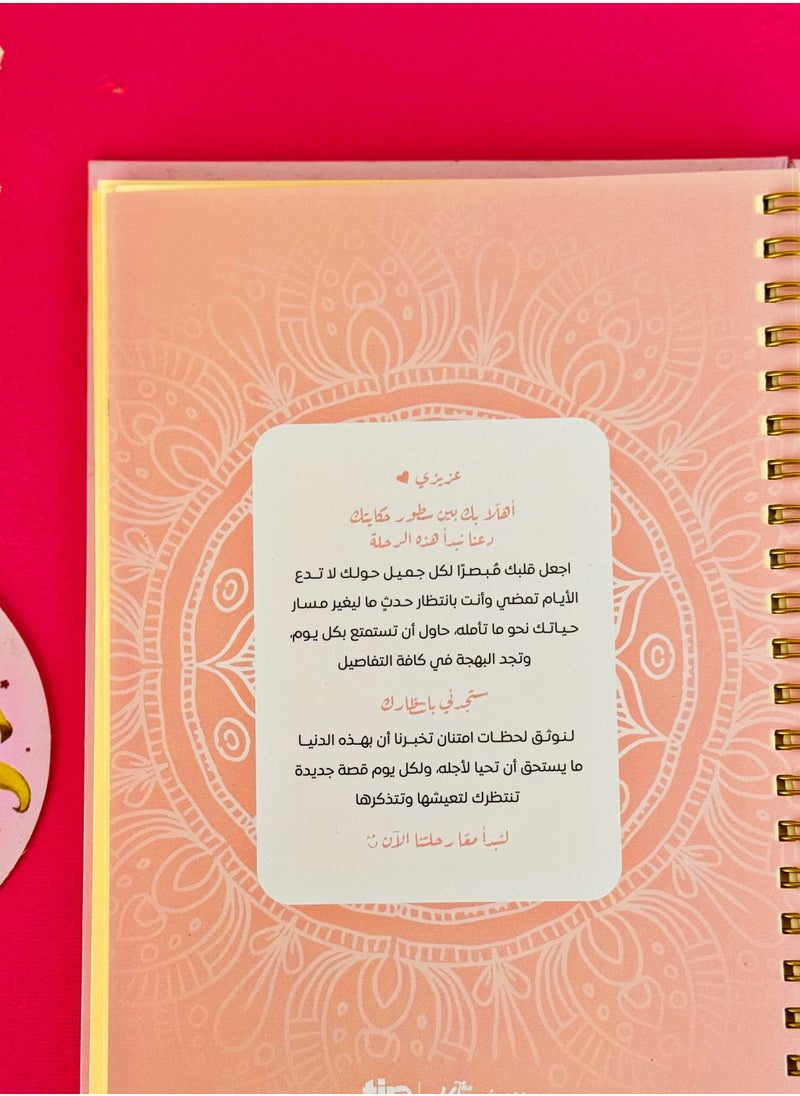 عزيزي
أهلًا بك بين سطور حكايتك
دعنا نبدأ هذه الرحلة
اجعل قلبك مُبصرًا لكل جميل حولك لا تدع
الأيام تمضي وأنت بانتظار حدثٍ ما ليغير مسار
حياتك نحو ما تأمله، حاول أن تستمتع بكل يوم،
وتجد البهجة في كافة التفاصيل
ستجدني بانتظارك
لنوثق لحظات امتنان تخبرنا أن بهذه الدنيا
ما يستحق أن تحيا لأجله، ولكل يوم قصة جديدة
تنتظرك لتعيشها وتتذكرها
لنبدأ معًا رحلتنا الآن
The